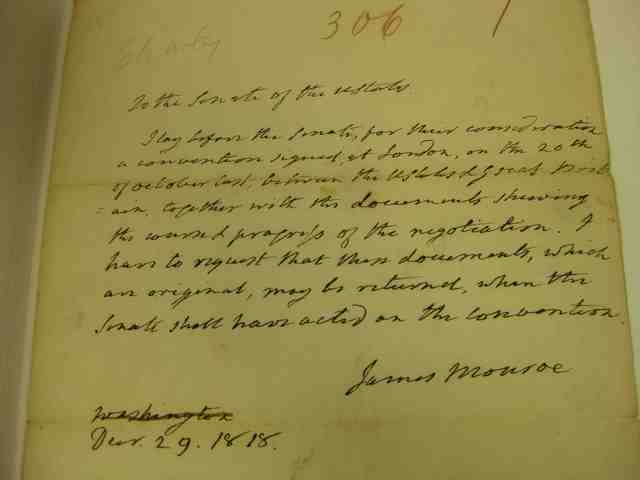 306
To the Senate of the UStates
I lay before the Senate, for their consideration
a convention signed, at London, on the 20th
of october last, between the UStates & Great Brit
= ain, together with the documents shewing
the course & progress of the negotiation. I
have to request that these documents, which
are original, may be returned, when the
Senate shall have acted on the convention.
James Monroe
Washington
Decr. 29. 1818.